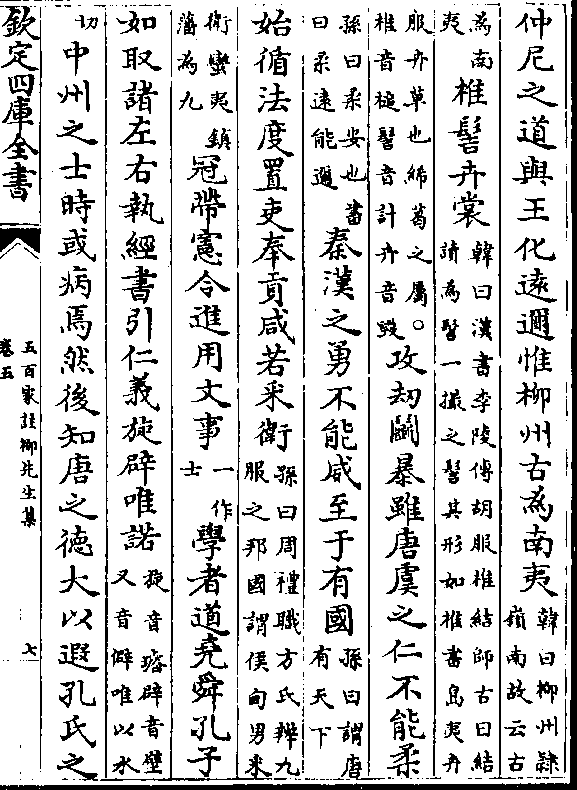 仲尼之道與王化遠邇惟柳州古為南夷韓曰柳州隷嶺南故云古
為南夷椎髻卉裳韓曰漢書李陵傳胡服椎結師古曰結讀為髻一撮之髻其形如椎書島夷卉
服卉草也絺葛之屬。椎音槌髻音計卉音毀攻刼鬭暴雖唐虞之仁不能柔
孫曰柔安也書曰柔遠能邇秦漢之勇不能威至于有國孫曰謂唐有天下
始循法度置吏奉貢咸若采衛孫曰周禮職方氏辨九服之邦國謂侯甸男采
衛蠻夷鎮藩為九冠帶憲令進用文事一作士學者道堯舜孔子
如取諸左右執經書引仁義旋辟唯諾旋音璿辟音壁又音僻唯以水
切中州之士時或病焉然後知唐之德大以遐孔氏之
欽定四庫全書
五百家註柳先生集
卷五
七